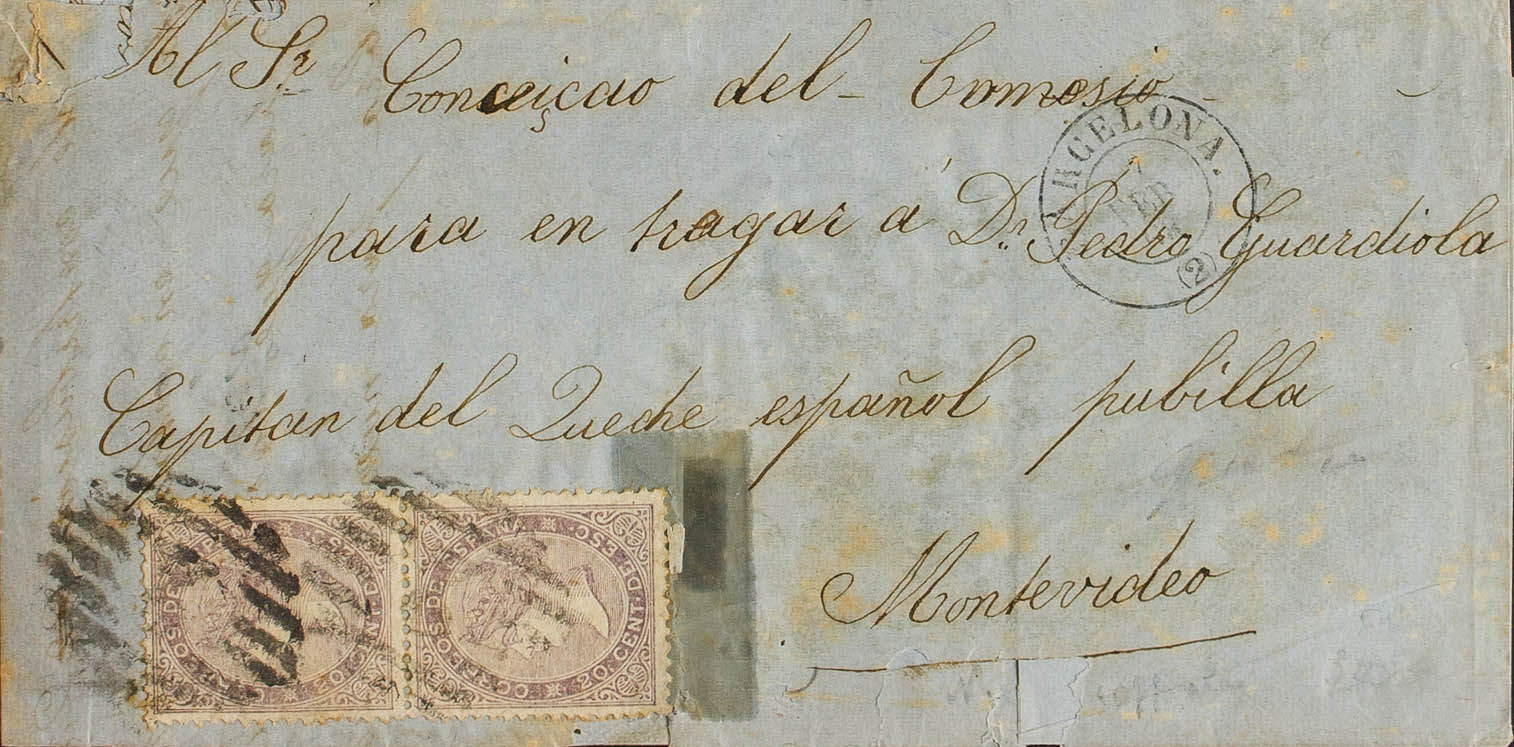 Al Sr Conceiçao del Comosio
para en tragar á Dn Pedro Guardiola
Capitan del Queche español pubilla
Montevideo
BARCELONA.
7
FEB
(2)
CORREOS DE ESPAÑA
20 CENT. DE ESCO
CORREOS DE ESPAÑA
20 CENT. DE ESCO